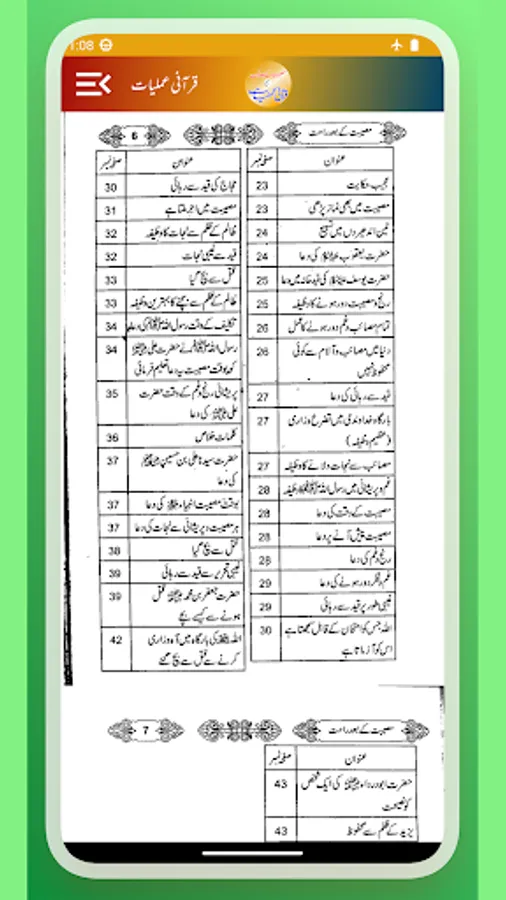 1:08
قرآنی عملیات
مصیبت کے بعد راحت
6
عنوان صفحہ نمبر
عجیب حکایت 23
مصیبت میں بھی نماز پڑھی 23
تین اندھیروں میں تسبیح 24
حضرت یعقوب علیہ السلام کی دعا 24
حضرت یوسف علیہ السلام کی قید خانہ میں دعا 25
رنج و مصیبت دور ہونے کا وظیفہ 25
تمام مصائب و غم دور ہونے کا عمل 26
دنیا میں مصائب و آلام سے کوئی 26
محفوظ نہیں
قید سے رہائی کی دعا 27
بارگاہ خداوندی میں تضرع وزاری 27
(عظیم وظیفہ)
مصائب سے نجات دلانے کا وظیفہ 27
غم و پریشانی میں رسول اللہ ﷺ کا وظیفہ 28
مصیبت کے وقت کی دعا 28
مصیبت پیش آنے پر دعا 28
رنج و غم کی دعا 28
غم و فکر دور ہونے کی دعا 29
غیبی طور پر قید سے رہائی 29
اللہ جس کو امتحان کے قابل سمجھتا ہے 30
اس کو آزماتا ہے
عنوان صفحہ نمبر
حجاج کی قید سے رہائی 30
مصیبت میں اجر ملتا ہے 31
ظالم کے ظلم سے نجات کا وظیفہ 32
قید سے غیبی نجات 32
قتل سے بچ گیا 33
ظالم کے ظلم سے بچنے کا بہترین وظیفہ 33
تکلیف کے وقت رسول اللہ ﷺ کی دعا 34
رسول اللہ ﷺ نے حضرت علی رضی اللہ عنہ 34
کو بوقت مصیبت یہ دعا تعلیم فرمائی
پریشانی رنج و غم کے وقت حضرت 35
علی رضی اللہ عنہ کی دعا
کلمات خلاص 36
حضرت سیدنا علی بن حسین 37
کی دعا
بوقت مصیبت انبیاء علیہم السلام کی دعا 37
ہر مصیبت و پریشانی سے نجات کی دعا 37
قتل سے بچ گیا 38
غیبی تحریر سے قید سے رہائی 39
حضرت جعفر بن محمد قتل 39
ہونے سے کیسے بچے
اللہ کی بارگاہ میں آہ و زاری 42
کرنے سے قتل سے بچ گئے
مصیبت کے بعد راحت
7
عنوان صفحہ نمبر
حضرت ابودرداء رضی اللہ عنہ کی ایک شخص 43
کو نصیحت
یزید کے ظلم سے محفوظ 43